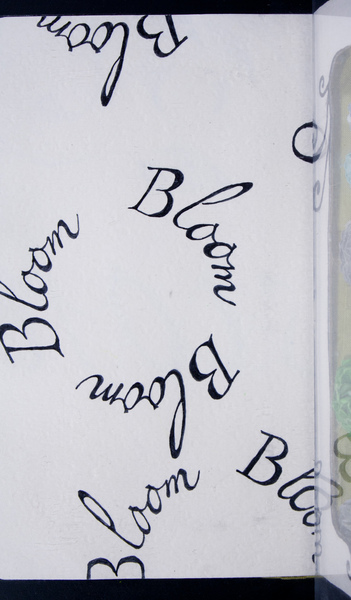 Bloom
Bloom
Bloom
Bloom
Bloom
Bloom